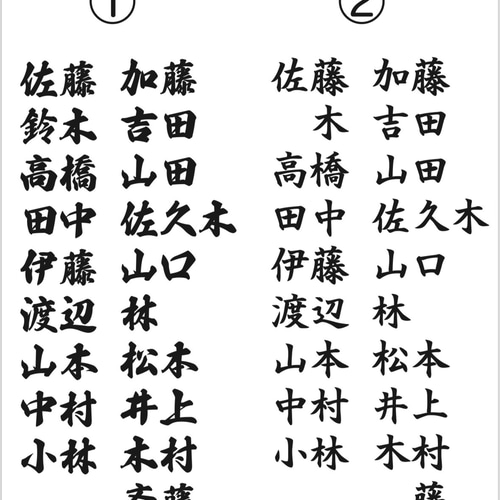 ① ②
佐藤 加藤 佐藤 加藤
鈴木 吉田 木 吉田
高橋 山田 高橋 山田
田中 佐久木 田中 佐久木
伊藤 山口 伊藤 山口
渡辺 林 渡辺 林
山本 松本 山本 松本
中村 井上 中村 井上
小林 木村 小林 木村
斉藤 藤